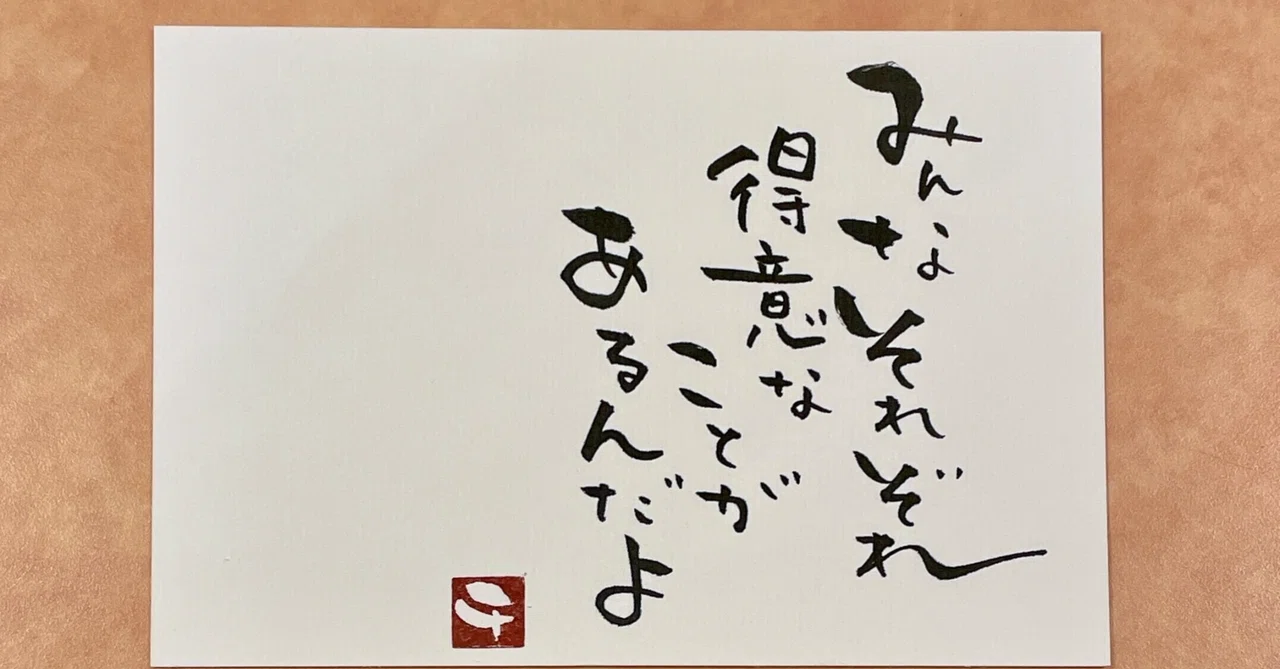 みんなそれぞれ
得意な
ことが
あるんだよ